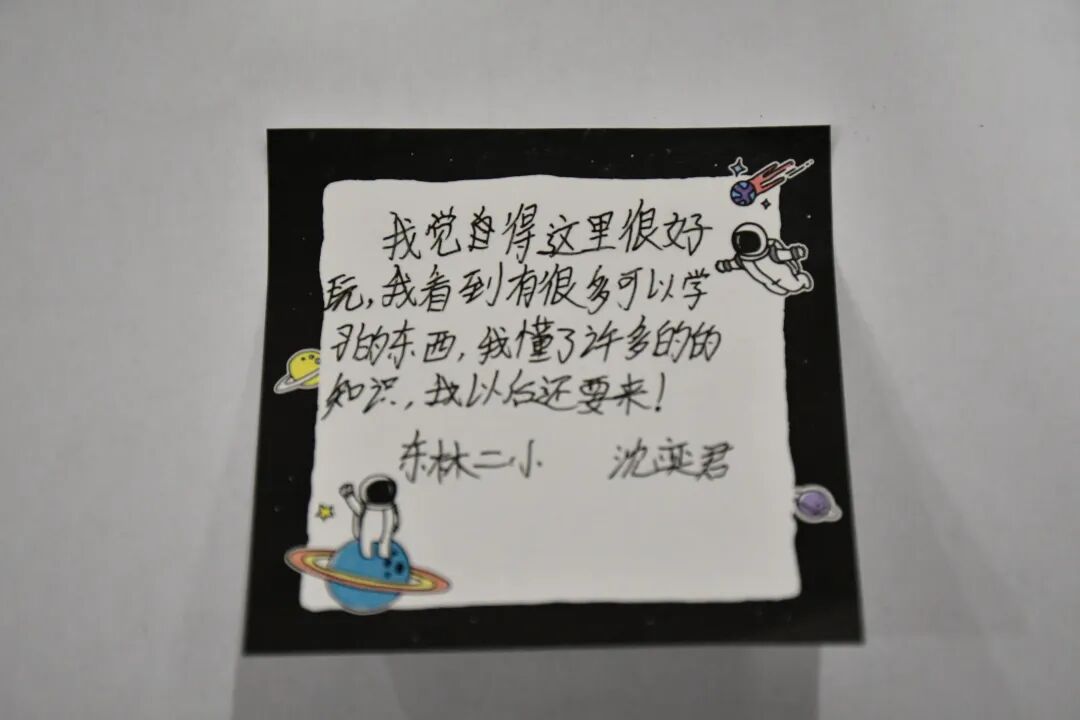 我觉自得这里很好
玩,我看到有很多可以学
习的东西,我懂了许多的的
知识,我以后还要来!
东林二小 沈奕君